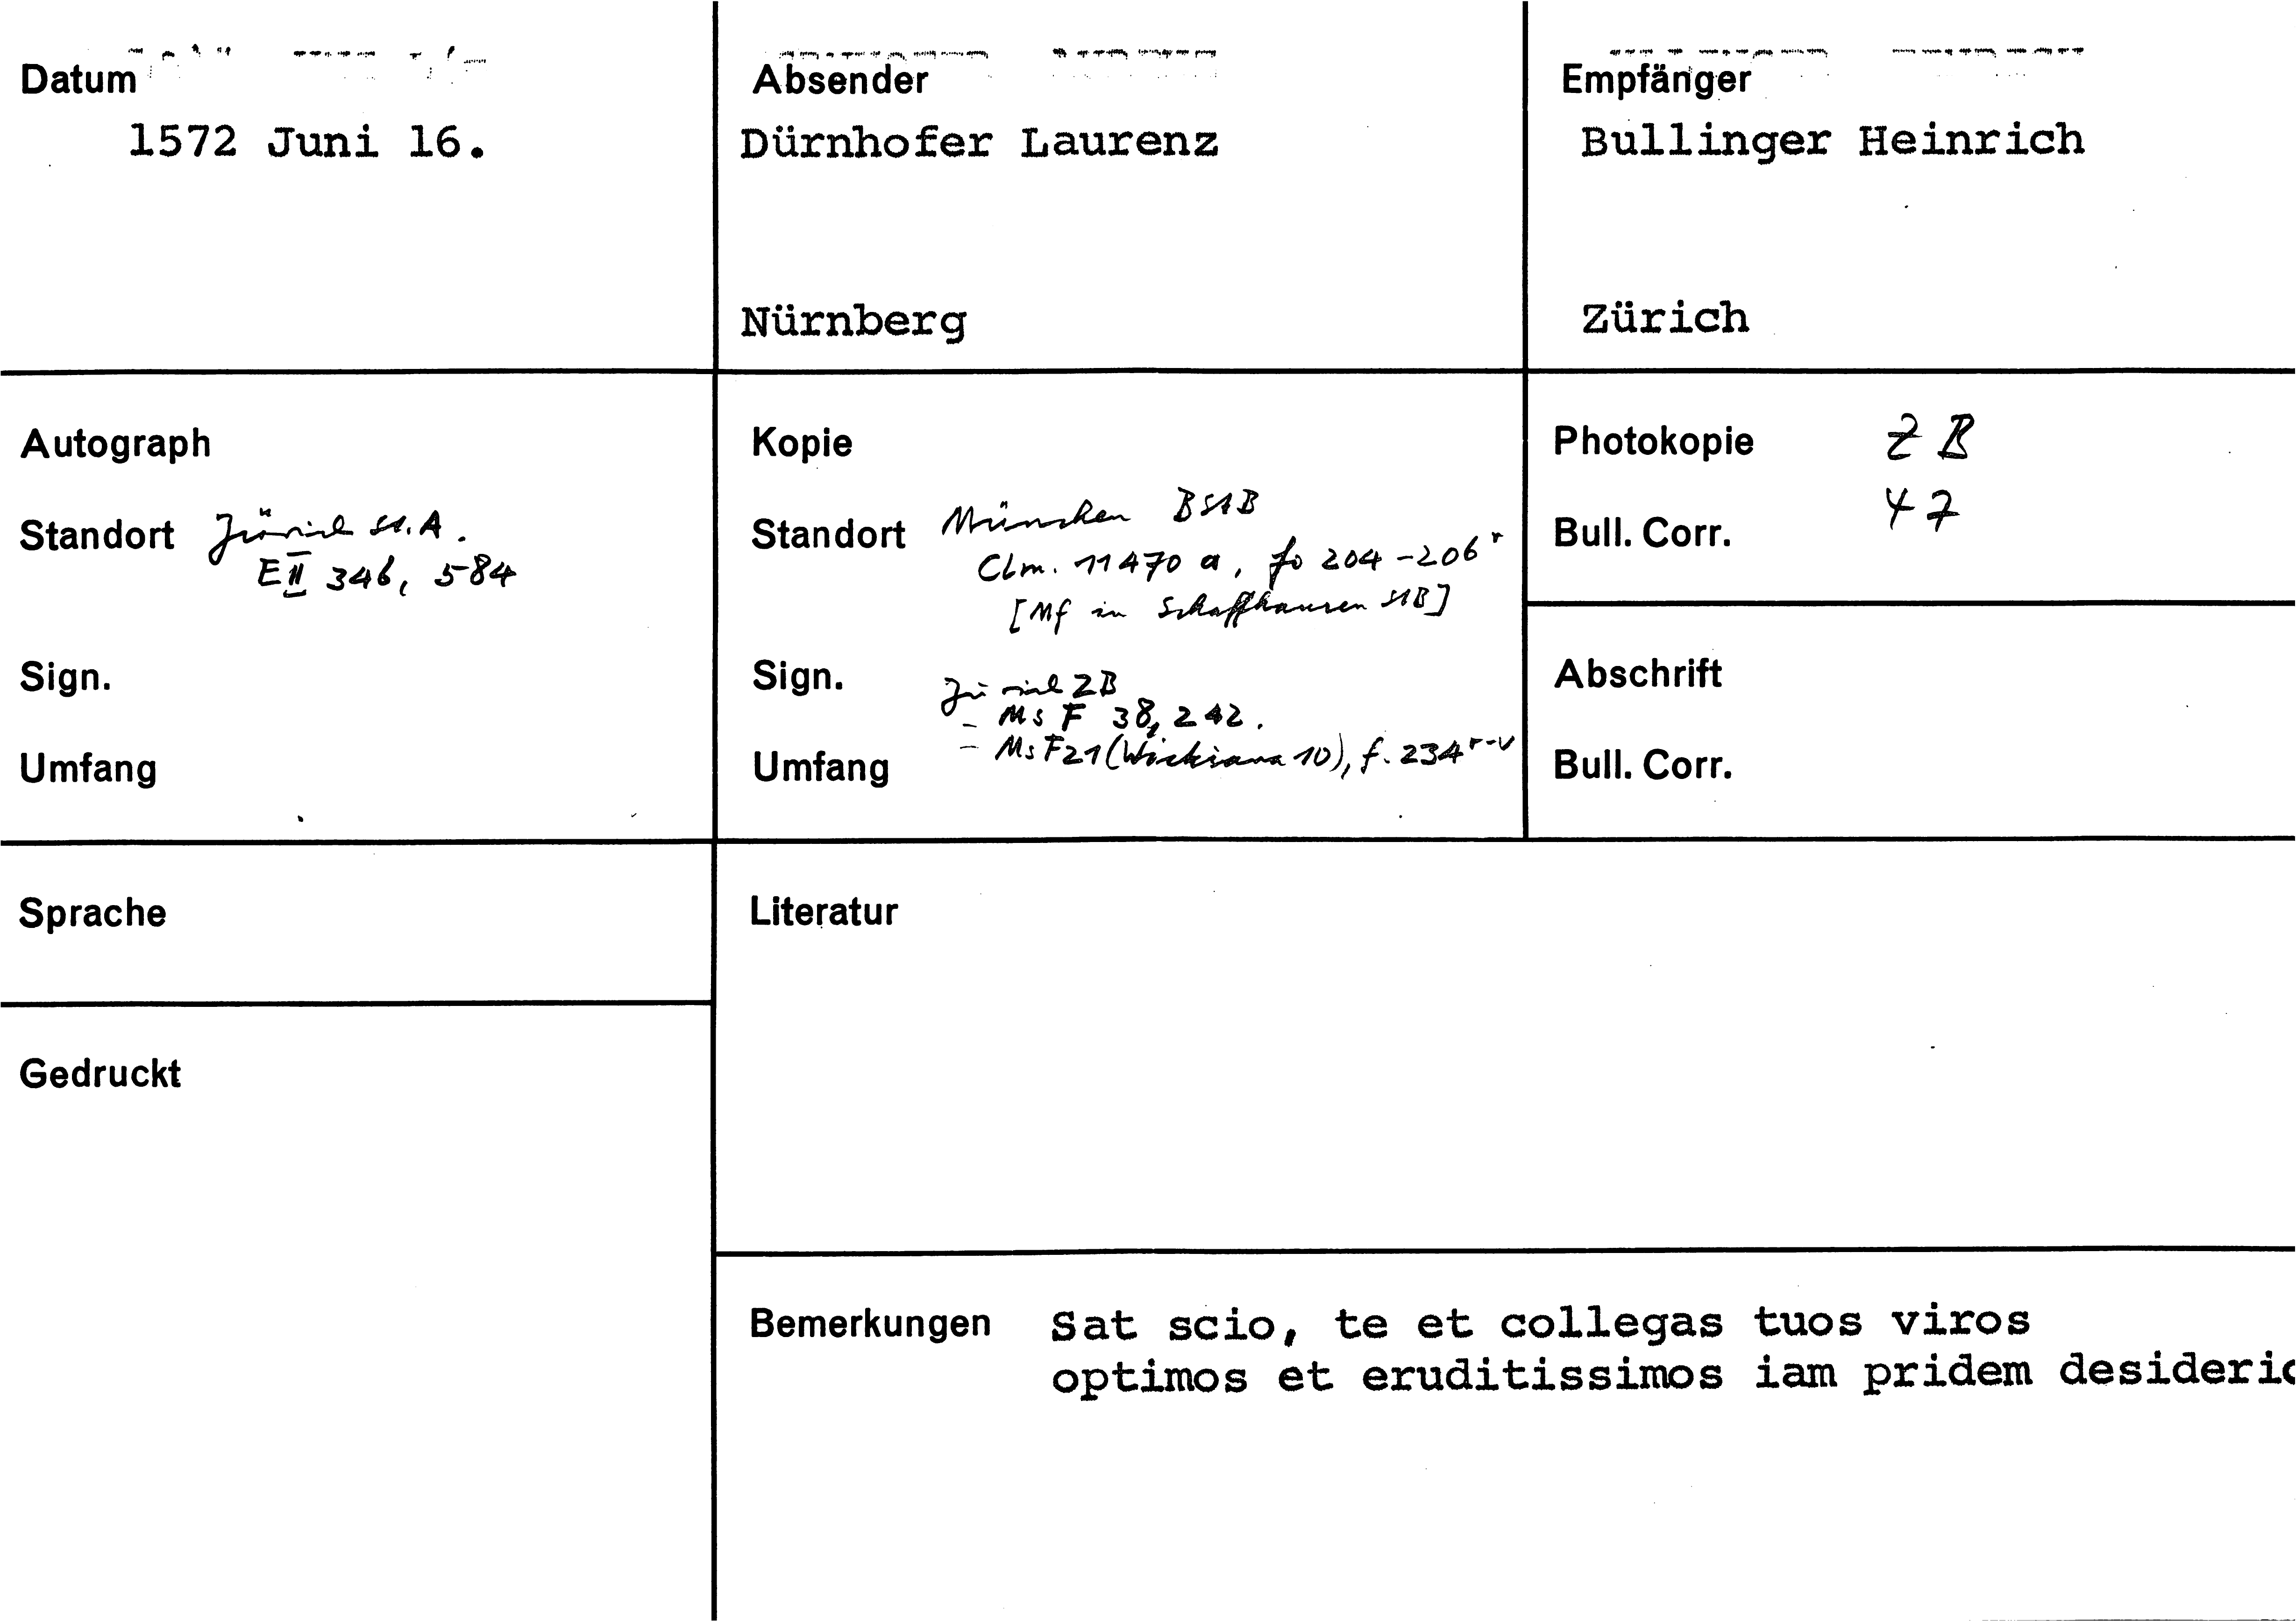 Datum
1572 Juni 16.
Absender
Dürnhofer Laurenz
Nürnberg
Empfänger
Bullinger Heinrich
Zürich
Autograph
Standort Zürich St.A.
E II 346, 584
Sign.
Umfang
Kopie
Standort München BStB
Clm. 11470 a, fo 204-206r
[Mf in Schaffhausen StB]
Sign. Zürich ZB
- Ms F 38, 242.
- Ms F21 (Wickiana 10), f. 234r-v
Umfang
Photokopie ZB
Bull. Corr. 47
Abschrift
Bull. Corr.
Sprache
Gedruckt
Literatur
Bemerkungen Sat scio, te et collegas tuos viros
optimos et eruditissimos iam pridem desideric